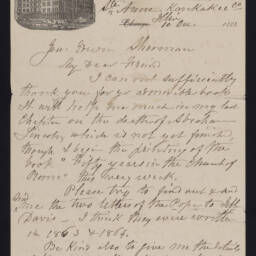 Ste Anne, Kankakee Co
Ills
10 Dec. 188
Gen. Edwin Sherman
My Dear Friend
I can not sufficiently
thank you for your book
It will help me much in my last
Chapter on the death of Abraham
Lincoln, which is not yet finish,
though I begin the printing of the
book "Fifty years in the Church of
Rome" this very week.
Please try to find out &
send
me the two letters of the Pope to Jeff
Davis - I think they were written
in 1863 & 1864.
Be kind also to give me the details